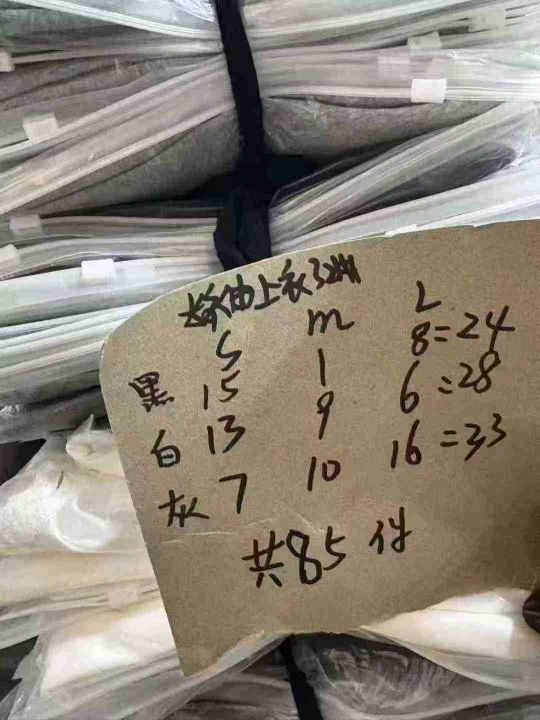 上衣
S m L
黑 15 1 8=24
白 13 9 6=28
灰 7 10 16=33
共85件